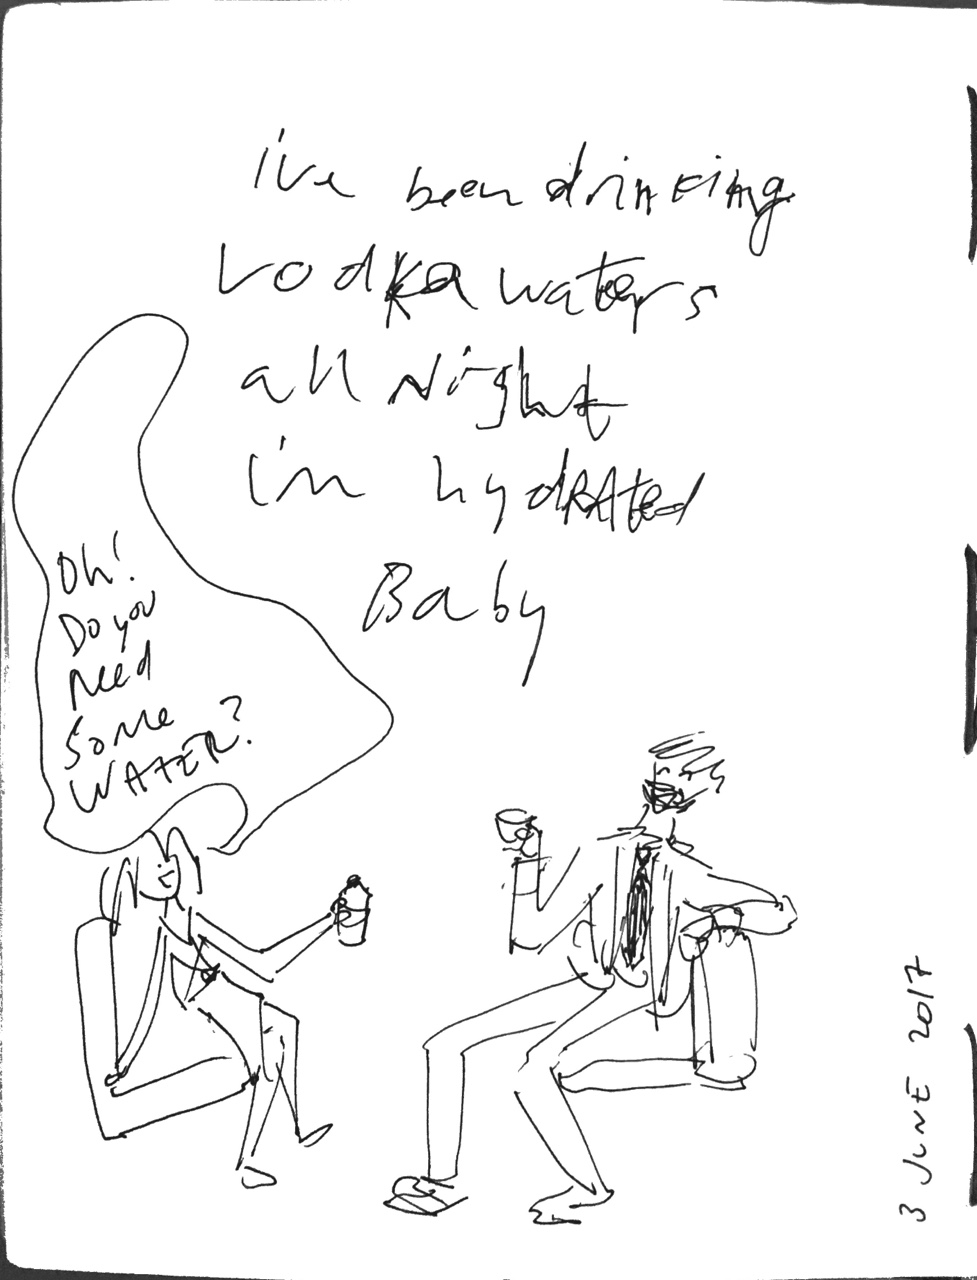 i've been drinking
vodka waters
all night
i'm hydRAted
Baby
Oh!
Do you
Need
Some
WATER?
3 JUNE 2017